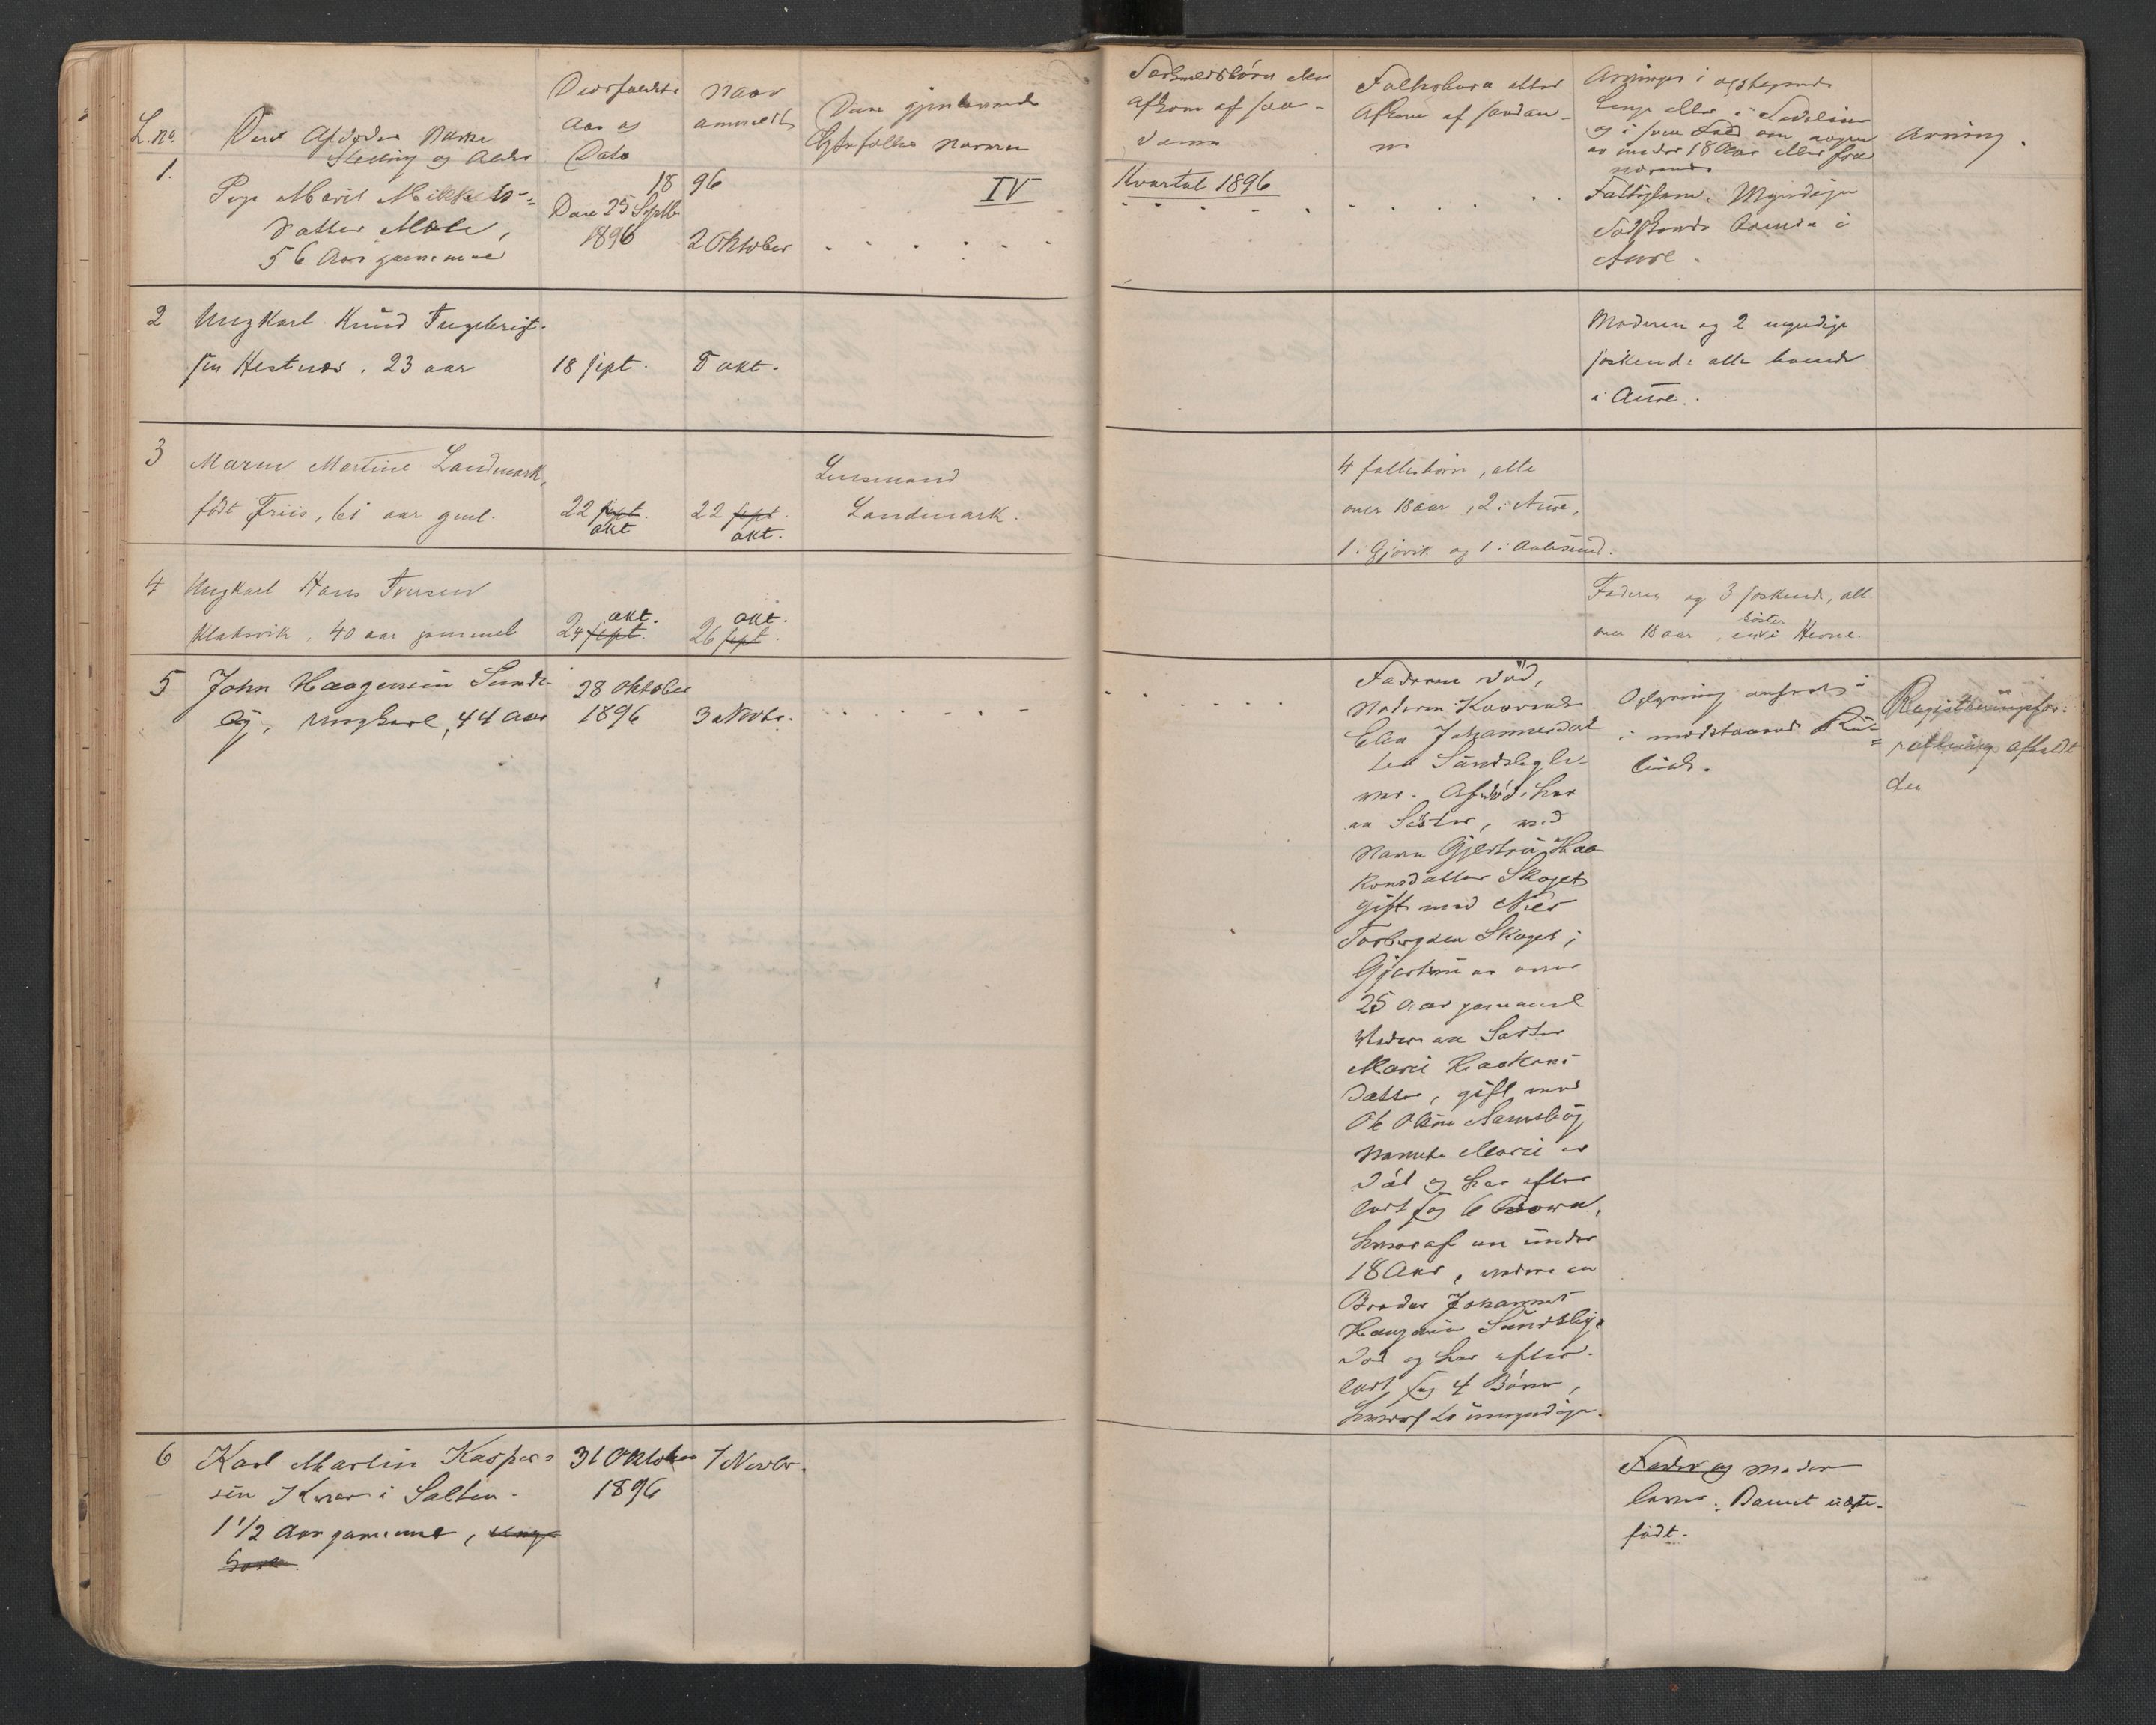 L.No.
Den Afdødes Navn
Stilling og Alder
Dødsfaldets
Aar og
Dato
Naar
anmeldt
Den gjenlevende
Ægtefælles Navn
Særkuldsbørn eller
Afkom af saa-
danne
Fællesbørn eller
Afkom af saadan-
ne
Arvinger i opstigende
Linje eller i Sidelinie
og i saa Fald om nogen
er under 18 Aar eller fra
værende
Arving.
1896
IV
Kvartal 1896
1.
Pige Marit Mikkels-
datter Mole,
56 Aar gammel
Den 25 Septb
1896
2 Oktober
Myndige
Sødskende boende i
Aure.
2
Ungkarl Knud Ingebrigt-
sen Hestnæs. 23 aar
18 sept.
5 okt.
Moderen og 2 myndige
søskende alle boende
i Aure.
3
Maren Martine Landmark,
født Friis, 61 aar gml.
22 sept.
okt
22 sept.
okt.
Lensmand
Landmark.
4 fællesbørn, alle
over 18 aar, 2 i Aure,
1 i Gjøvik og 1 i Aalesund.
4
Ungkarl Hans Iversen
Klaksvik, 40 aar gammel
okt.
24 sept.
okt.
26 sept.
Faderen og 3 søskende, alle
over 18 aar, en søster i Hevne.
5
John Haagensen Sunds-
øy, ungkarl, 44 Aar
28 Oktober
1896
3 Novbr.
Faderen død,
Moderen
Johannesdat
ter
ver. Afdøde har
en Søster, ved
Navn Gjertru Haa-
konsdatter Skaget
gift med Nils
Torbergsen Skaget;
Gjertru er over
25 Aar gammel
videre en Søster
Marie Haakons
datter, gift med
Ole Olsen
nævnte Marie er
død og har efter
ladt sig 6 Børn,
hvoraf en under
18 Aar, videre en
Broder Johannes
Haagensen
død og har efter-
ladt sig 4 Børn,
hvoraf to umyndige.
Oplysning anført i
i modstaaende Ru-
brik.
Registreringsfor-
retning afholdt
den
6
Karl Martin Kaspers
sen Kvær i Salten.
1 1/2 Aar gammel, Ung-
karl.
31 Oktober
1896
7 Novbr.
Fader og Moder
lever. Barnet uægte-
født.